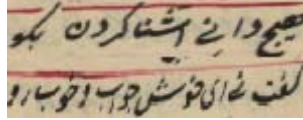 هیچ دانی آشنا کردن بگو
گفت نی ای خوش جواب و خوب رو